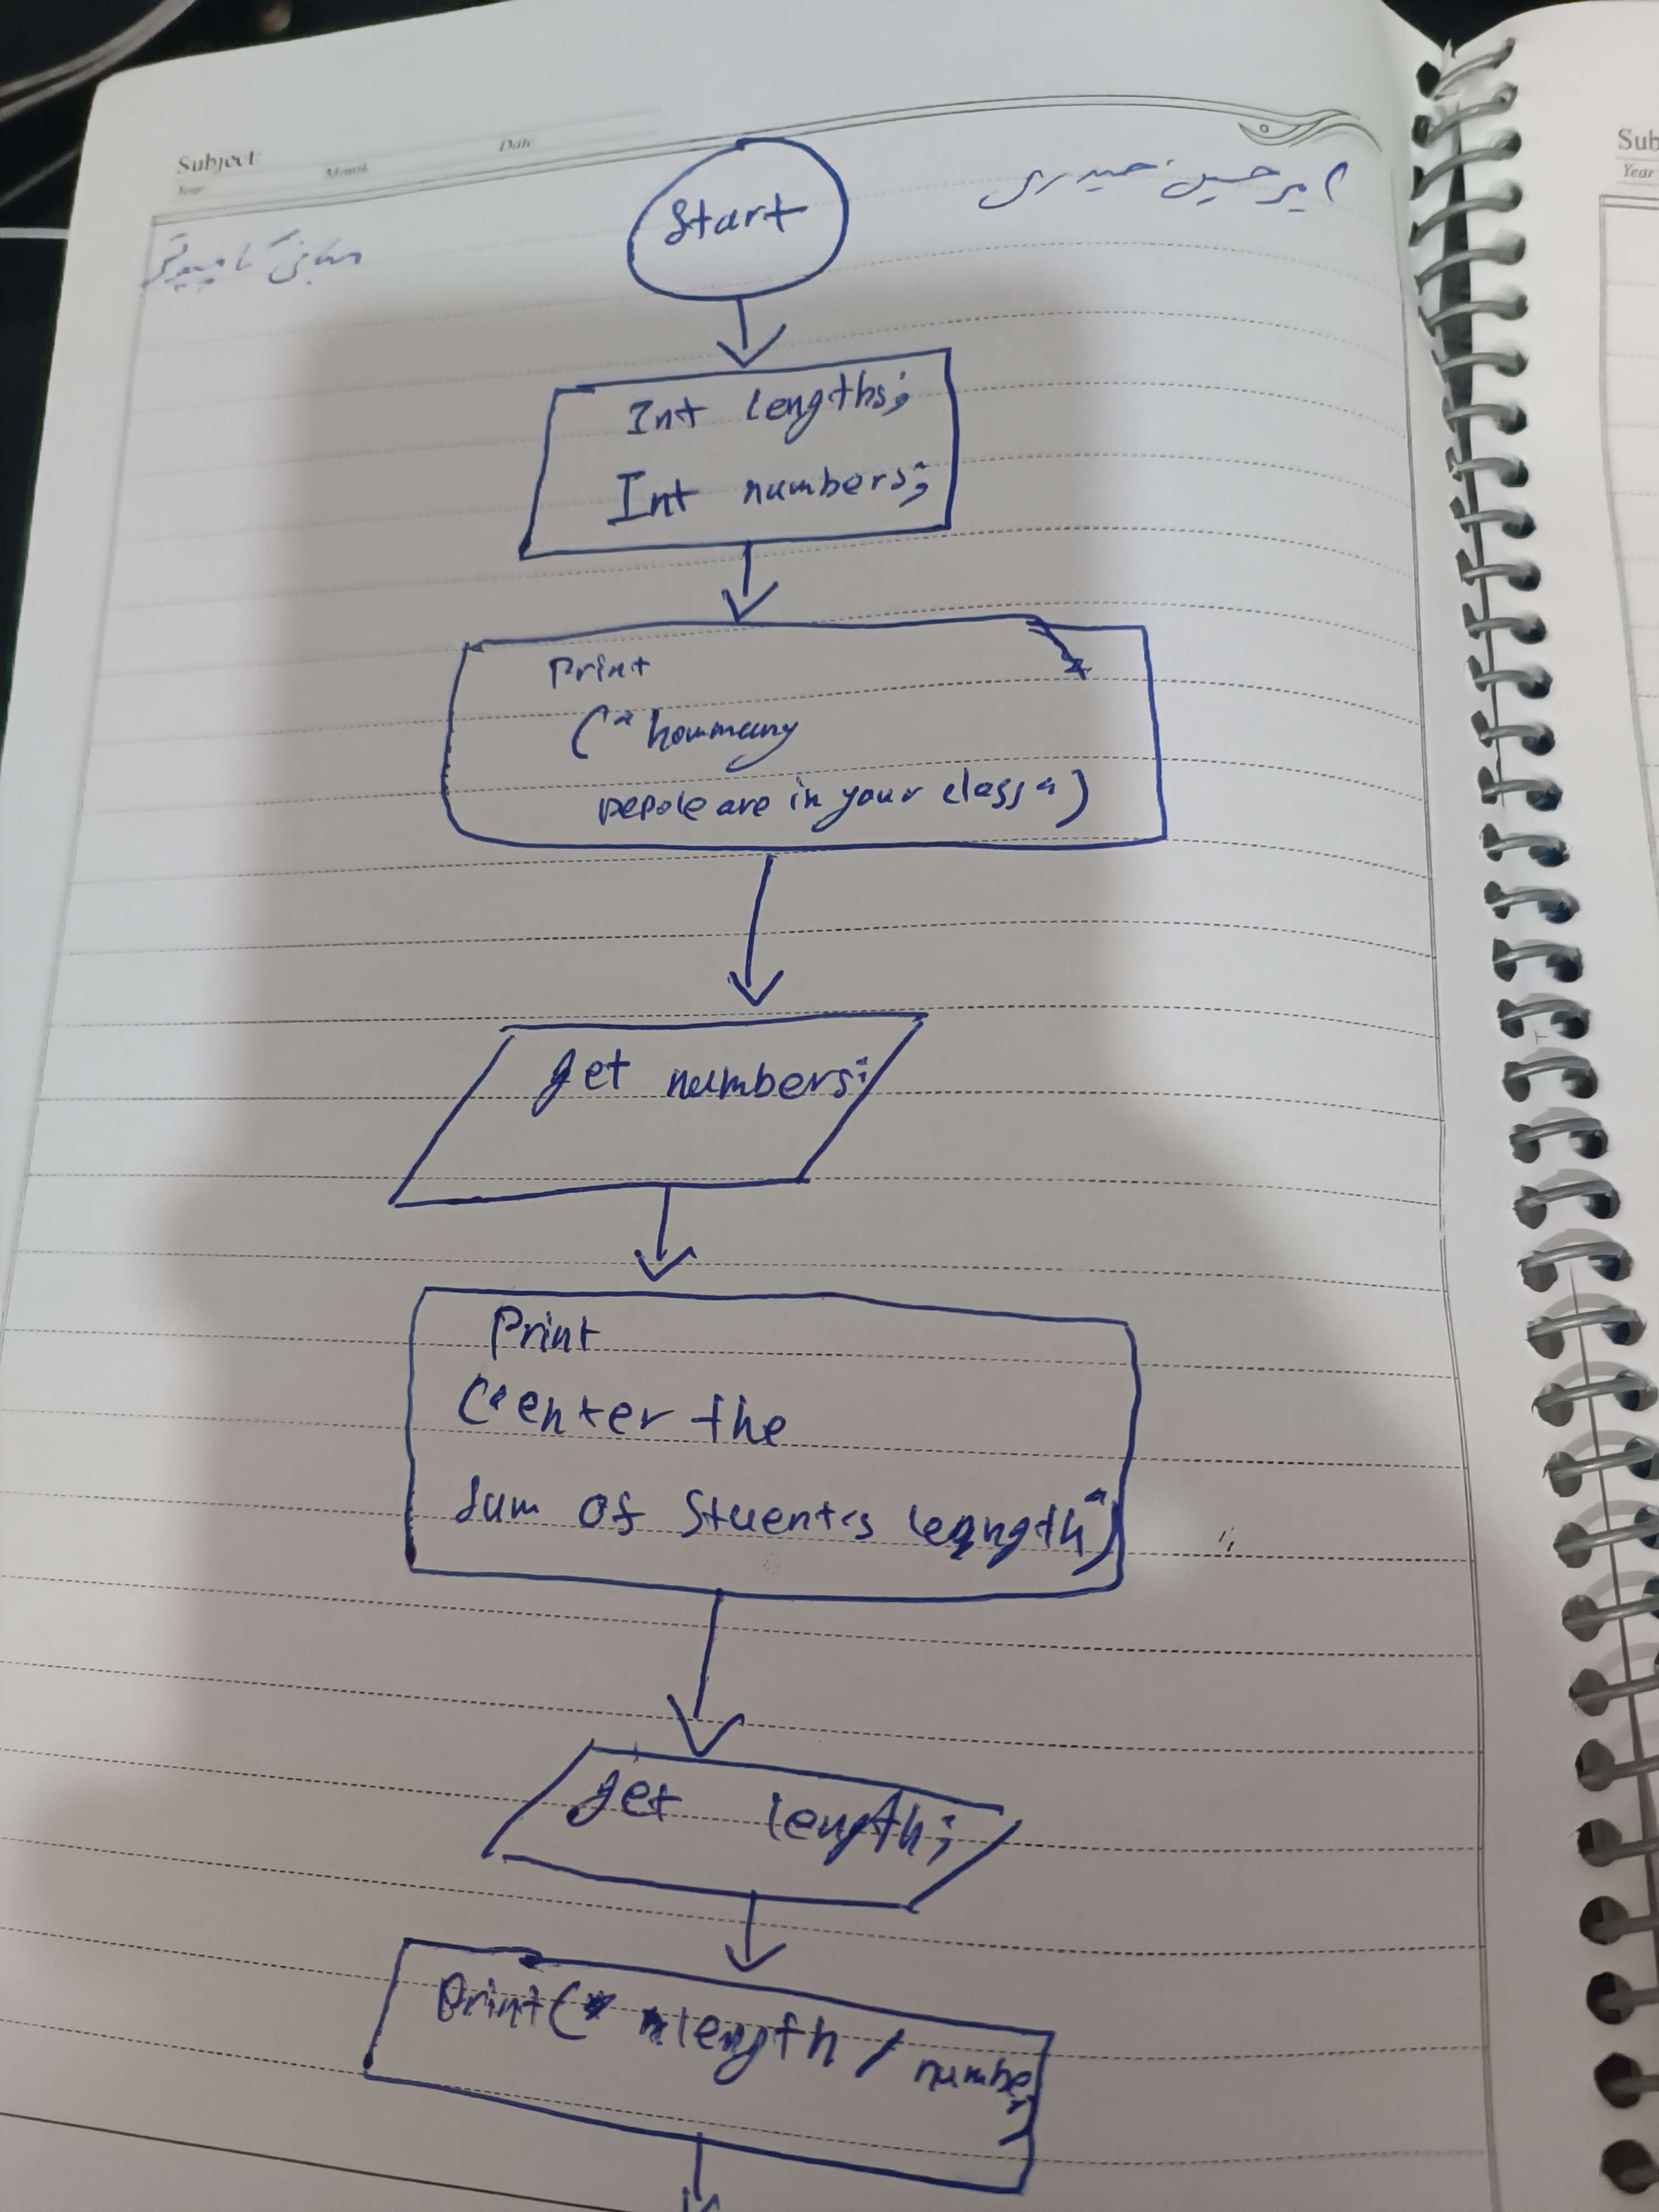 Subject
Year
Month
Date
امیرحسین حیدری
مبانی کامپیوتر
Start
Int lengths;
Int numbers;
Print
("howmany
pepole are in your class")
get numbers;
Print
("enter the
sum of stuents length")
get length;
print( length / number)
Sub
Year